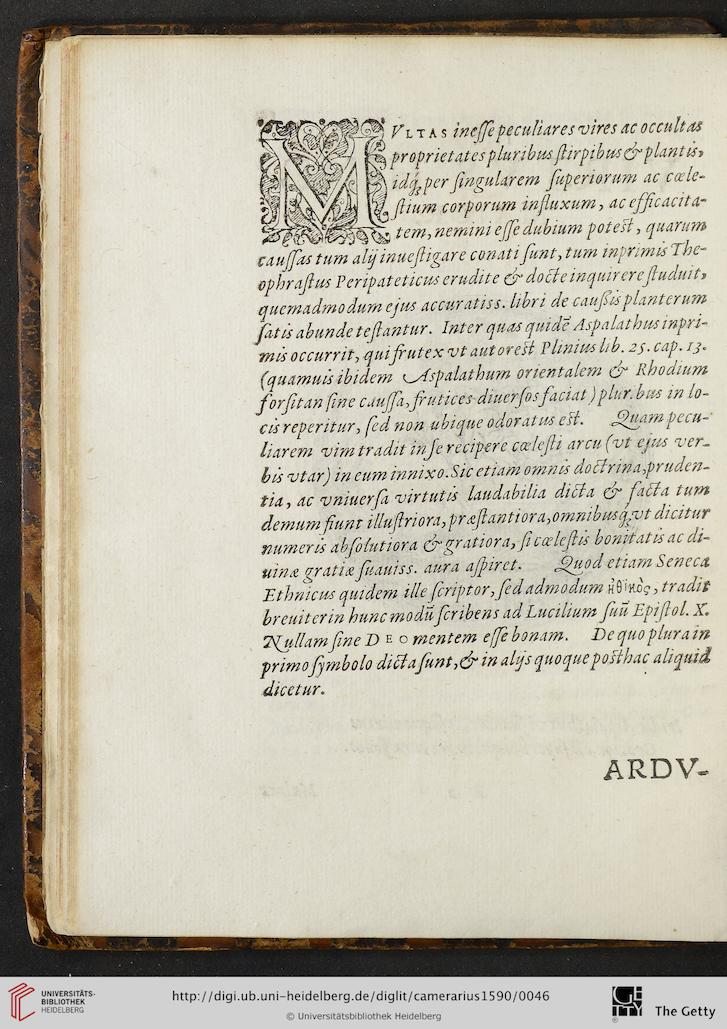 MVLTAS inesse peculiares vires ac occultas
proprietates pluribus stirpibus & plantis,
idq́; per singularem superiorum ac cœle-
stium corporum influxum, ac efficacita-
tem, nemini esse dubium potest, quarum
caussas tum alij inuestigare conati sunt, tum inprimis The-
ophrastus Peripateticus erudite & docte inquirere studuit,
quemadmodum ejus accuratiss. libri de caußis planterum
satis abunde testantur. Inter quas quidẽ Aspalathus inpri-
mis occurrit, qui frutex vt autor est Plinius lib. 25. cap. 13.
(quamuis ibidem Aspalathum orientalem & Rhodium
forsitan sine caussa, frutices diuersos faciat) plur.bus in lo-
cis reperitur, sed non ubique odoratus est. Quam pecu-
liarem vim tradit in se recipere cœlesti arcu (vt ejus ver-
bis vtar) in eum innixo. Sic etiam omnis doctrina, pruden-
tia, ac vniuersa virtutis laudabilia dicta & facta tum
demum fiunt illustriora, præstantiora, omnibusq́; vt dicitur
numeris absolutiora & gratiora, si cœlestis bonitatis ac di-
uinæ gratiæ suauiss. aura aspiret. Quod etiam Seneca
Ethnicus quidem ille scriptor, sed admodum ἠθικὸς, tradit
breuiter in hunc modũ scribens ad Lucilium suũ Epistol. X.
Nullam sine DEO mentem esse bonam. De quo plura in
primo symbolo dicta sunt, & in alijs quoque posthac aliquid
dicetur.
ARDV-
UNIVERSITÄTS-
BIBLIOTHEK
HEIDELBERG
http://digi.ub.uni-heidelberg.de/diglit/camerarius1590/0046
© Universitätsbibliothek Heidelberg
The Getty